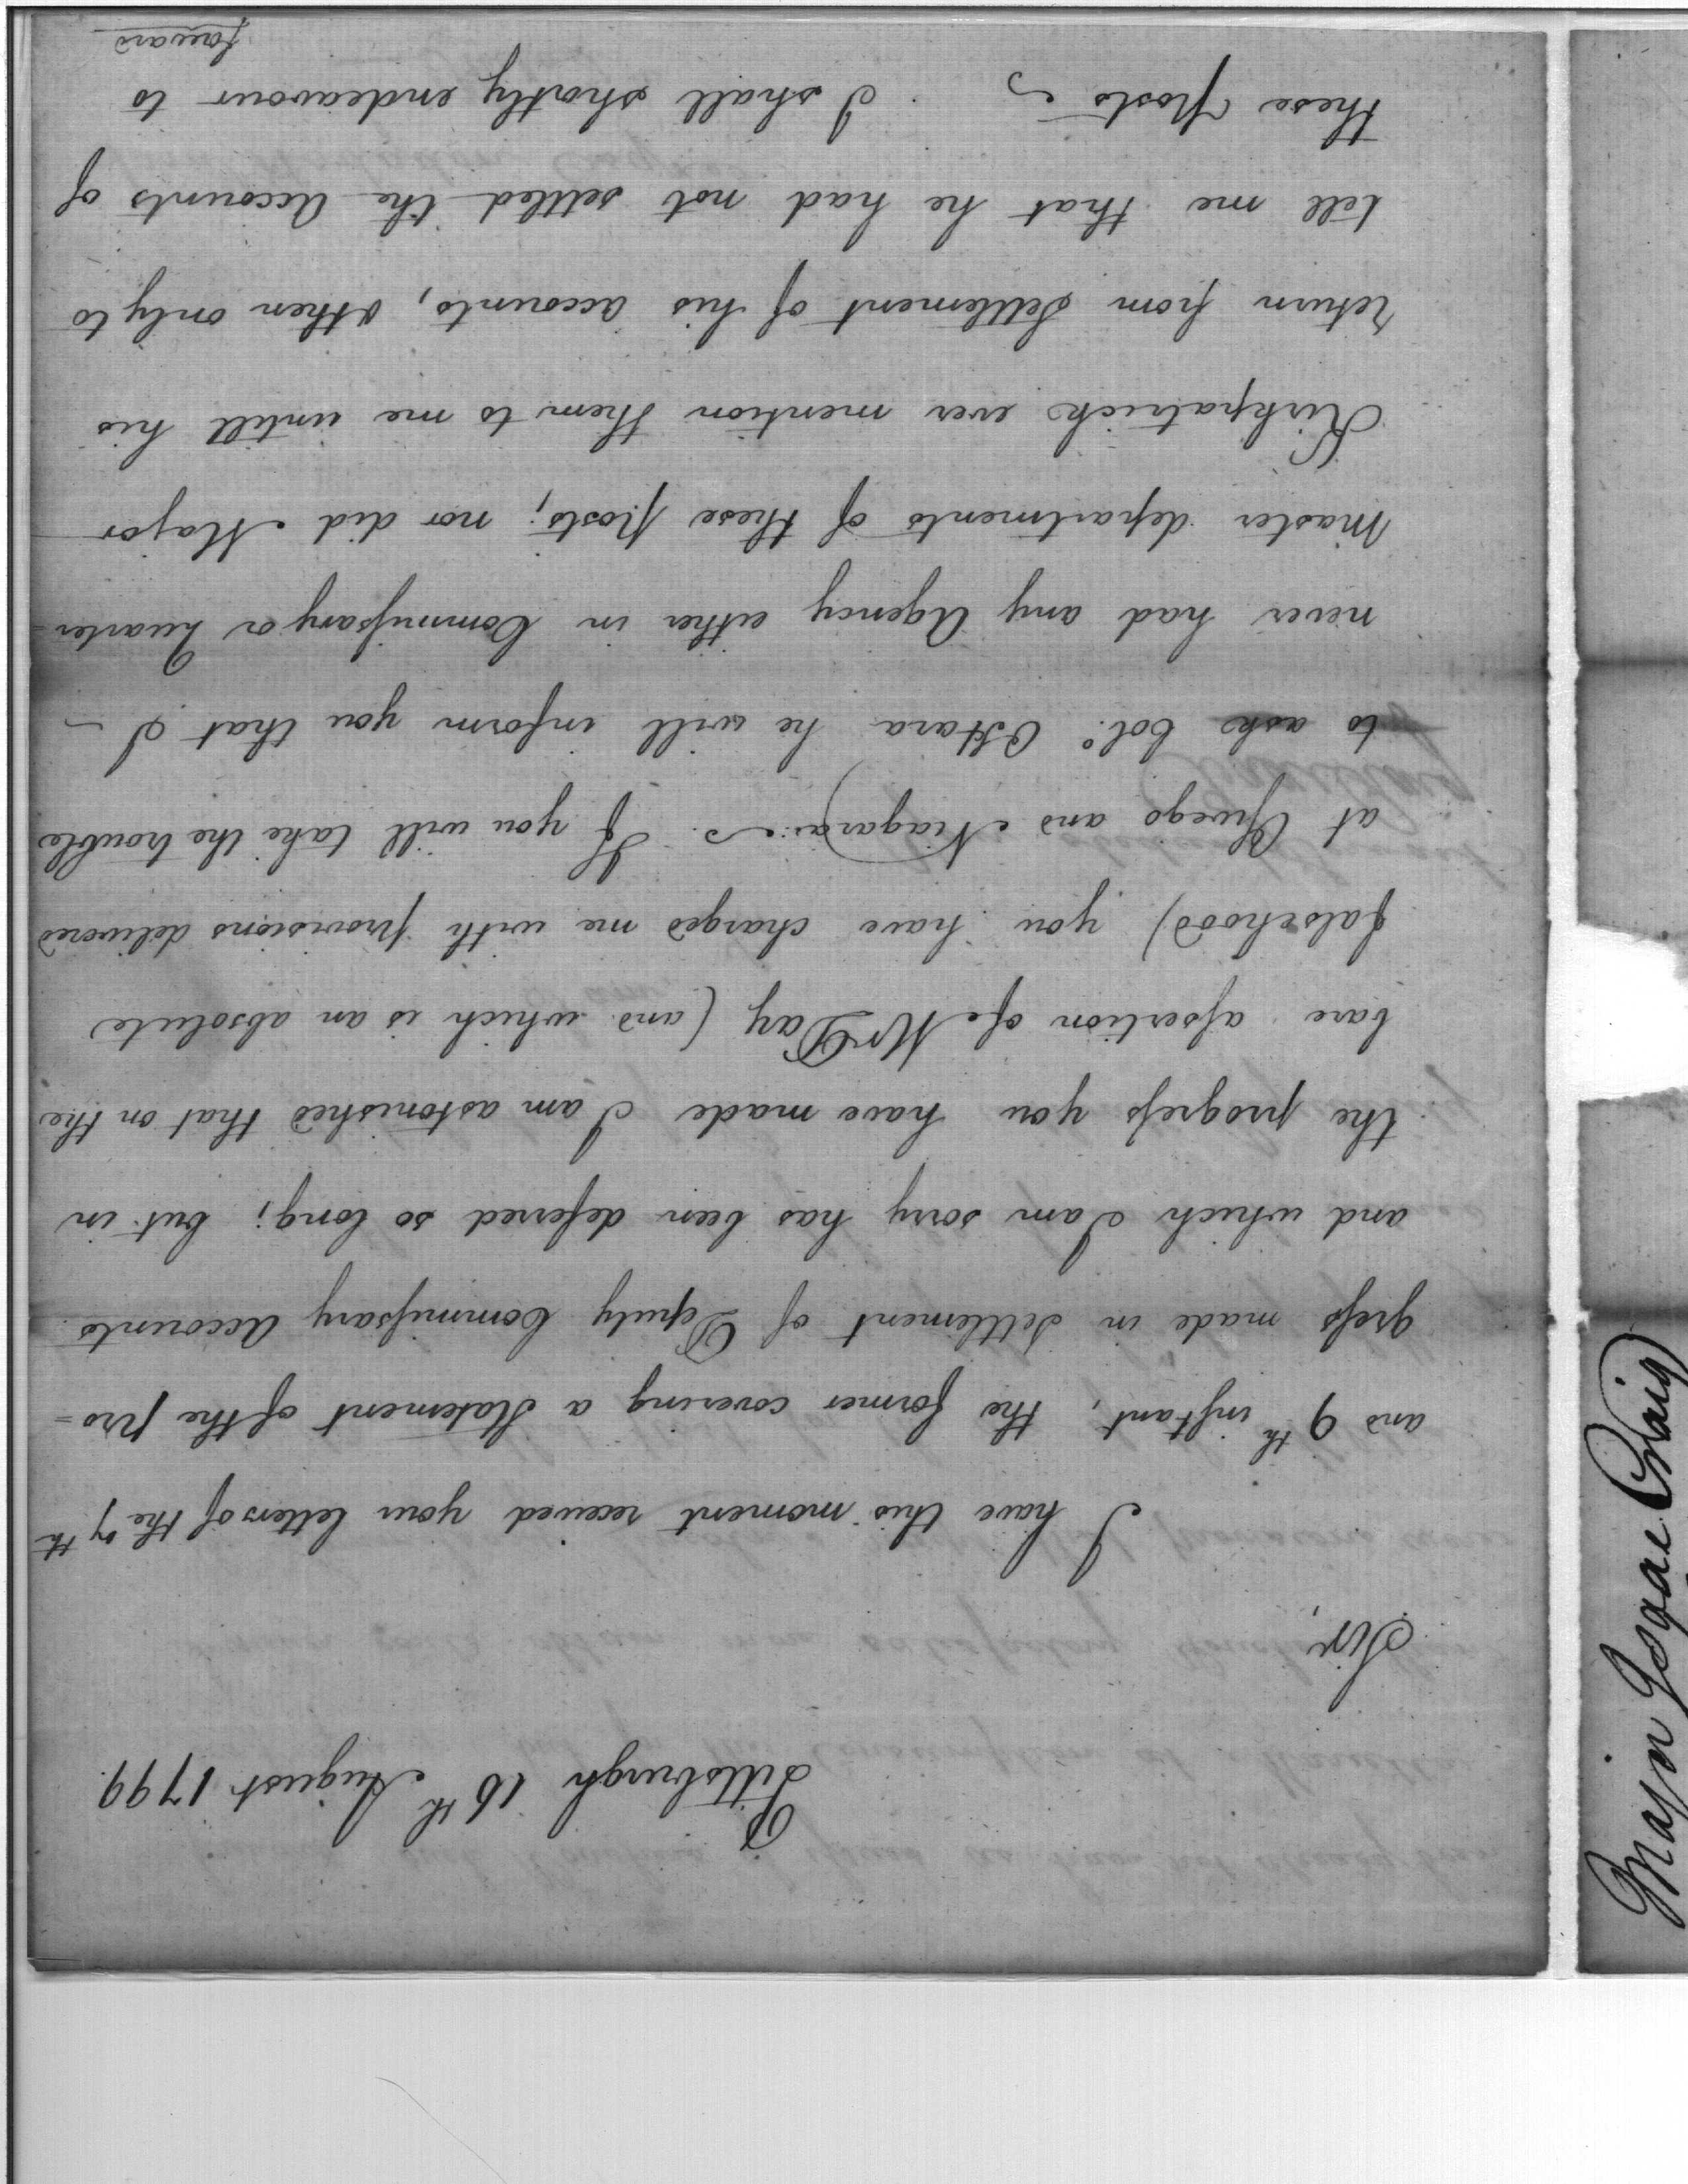 Pittsburgh 16th August 1799.
Sir,
I have this moment received your letters of the 7th
and 9th instant, the former covering a Statement of the pro=
gress made in Settlement of Deputy Commissary Accounts
and which I am sorry has been deferred so long; but in
the progress you have made I am astonished that on the
bare assertion of Mr Day (and which is an absolute
falsehood) you have charged me with provisions delivered
at Oswego and Niagara. If you will take the trouble
to ask Colo. OHara he will inform you that I
never had any Agency either in Commissary or Quarter=
Master departments of these posts; nor did Major
Kirkpatrick ever mention them to me untill his
return from Settlement of his accounts, & then only to
tell me that he had not settled the Accounts of
these Posts I shall shortly endeavour to
forward
Major Isaac Craig